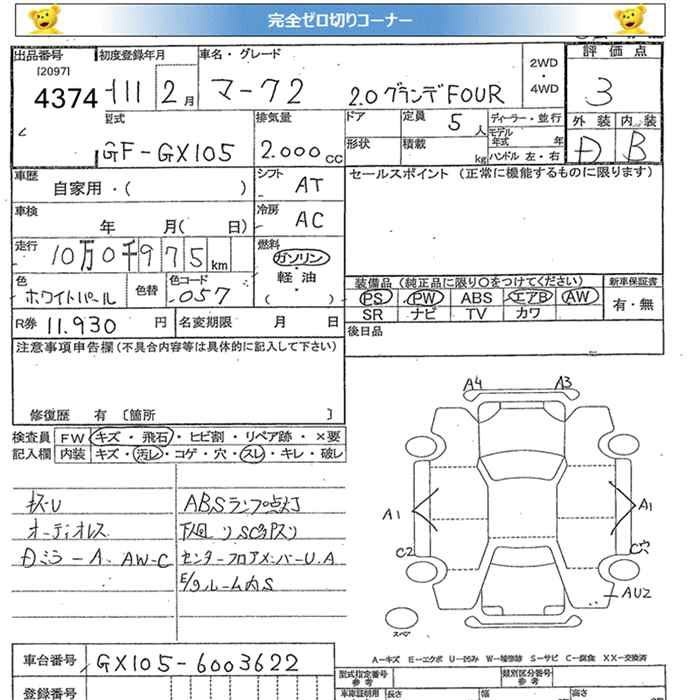 完全ゼロ切りコーナー
出品番号
[2097]
4374
初度登録年月
H11 2月
車名・グレード
マーク2 2.0グランデFOUR
2WD
・
4WD
評価点
3
型式
GF-GX105
排気量
2.000cc
ドア
定員 5人
ディーラー・並行
形状
積載 kg
モデル年式 年
ハンドル 左・右
外装 内装
D B
車歴
自家用・( )
シフト AT
セールスポイント (正常に機能するものに限ります)
車検
年 月( 日)
冷房 AC
走行
10万0千975km
燃料
ガソリン
・
軽油
( )
色
ホワイトパール
色替
色コード
057
装備品 (純正品に限り○をつけてください)
新車保証書
PS PW ABS エアB AW
有・無
SR ナビ TV カワ
R券 11.930円
名変期限 月 日
後日品
注意事項申告欄(不具合内容等は具体的に記入して下さい)
修復歴 有 [箇所 ]
検査員
記入欄
FW キズ・飛石・ヒビ割・リペア跡・×要
内装 キズ・汚レ・コゲ・穴・スレ・キレ・破レ
ABSランプ点灯
オーディオレス
Dミラ-A、AW-C
センターフロアメンバーU.A
E/gルーム内S
A4 A3
A1 A1
C2
AU2
スペア
A-キズ E-エクボ U-凹み W-補修跡 S-サビ C-腐食 XX-交換済
車台番号 GX105-6003622
登録番号
型式指定番号
参考
類別区分番号
参考
車庫証明用 長さ 幅 高さ